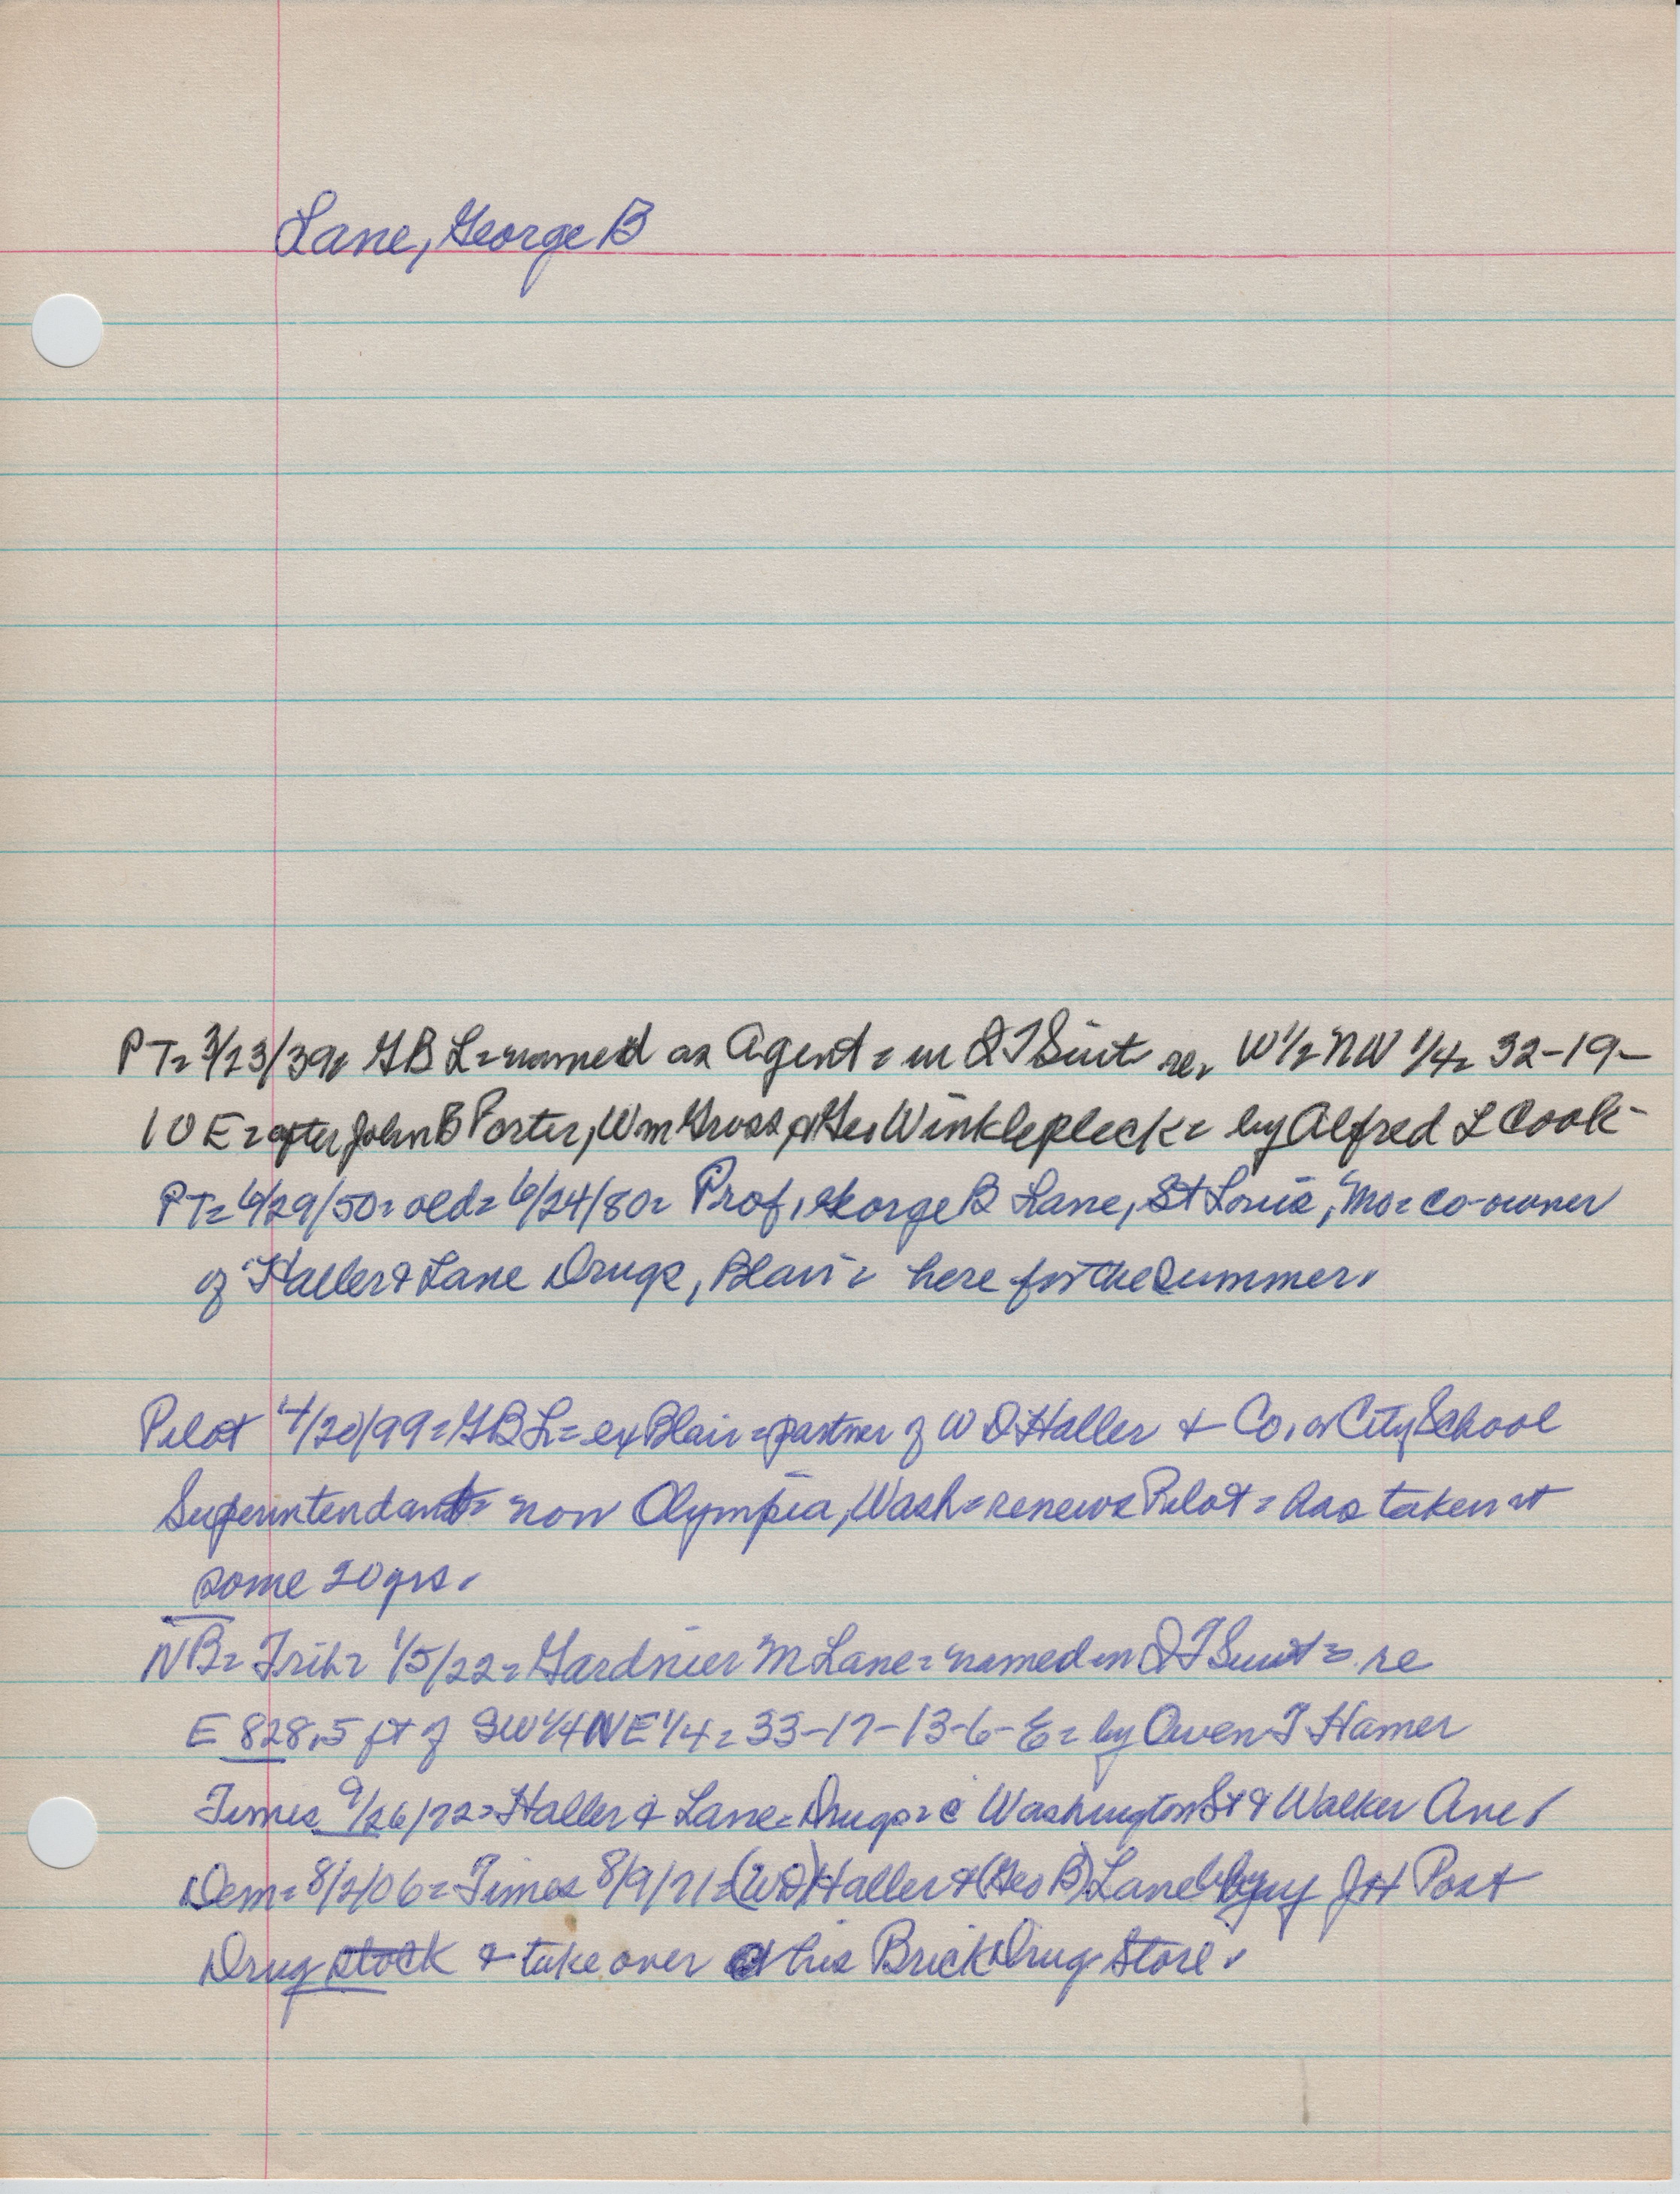 Lane, George B
PT= 3/23/39= GBL= named as Agent= in QTSuit re, W1/2NW 1/4= 32-19-
10E= after John B Porter, Wm Gross, & Geo Winklepleck= by Alfred L Cook-
PT= 6/29/50= old= 6/24/80= Prof, George B Lane, St Louis, Mo= co-owner
of Haller & Lane Drugs, Blair= here for the Summer.
Pilot 4/20/99= GBL= ex Blair= partner of W D Haller & Co, or City School
Superintendant= now Olympia, Wash= renews Pilot= has taken it
some 20yrs.
NB= Trib= 1/5/22= Gardnier M Lane= named in QTSuit= re
E 828.5 ft of SW1/4NE1/4= 33-17-13-6-E= by Owen T Hamer
Times 9/26/72= Haller & Lane= Drugs= c Washington St & Walker Ave.
Dem= 8/2/06= Times 8/9/71= (WD) Haller & (Geo B) Lane buy JH Post
Drug stock & take over his Brick Drug Store.